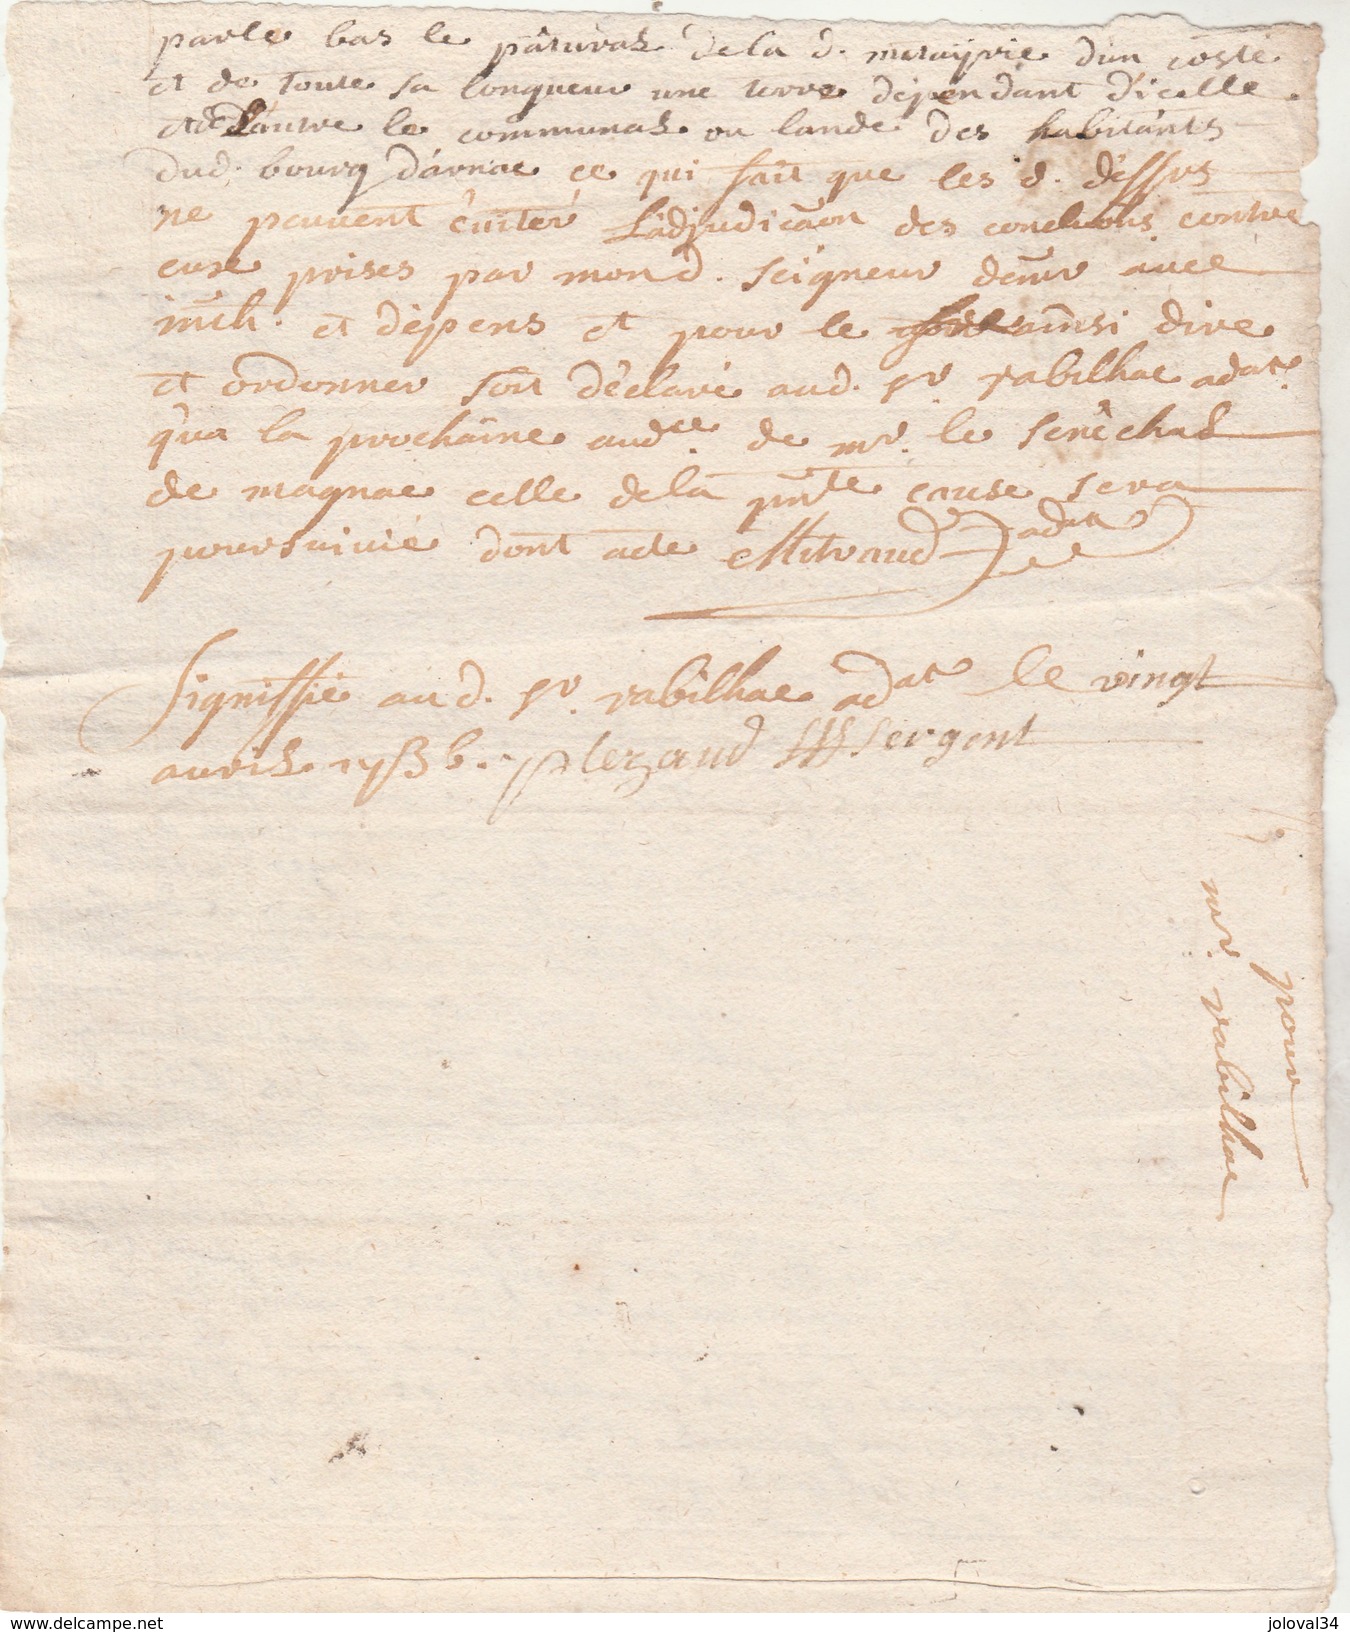 par le bas le pâtural de la d. metayrie d'un costé
et de toute sa longueur une terre dépendant d'icelle
et de L'autre le communal ou lande des habitants
dud. bourg d'arnac ce qui fait que les d. dessus
ne peuvent éviter L'adjudicaon des conclusions contre
eux prises par mond. seigneur demr avec
inth. et dépens et pour le ainsi dire
et ordonner soit déclaré aud. sr. rabilhac adat.
qu'a la prochaine audce. de mr. le sénéchal
de magnac celle de la pnte cause sera
poursuivie dont acte Mitraud adat
Signiffié aud. sr. rabilhac adat le vingt
avril 175 Plezaud sergent
pour
mr. rabilhac
www.delcampe.net
joloval34